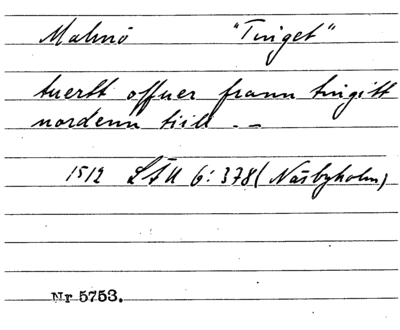 Malmö "Tinget"
tuertt offuer frann tingitt
nordenn tiill . –
1512 LÅU 6:378 (Näsbyholm)
Nr 5753.